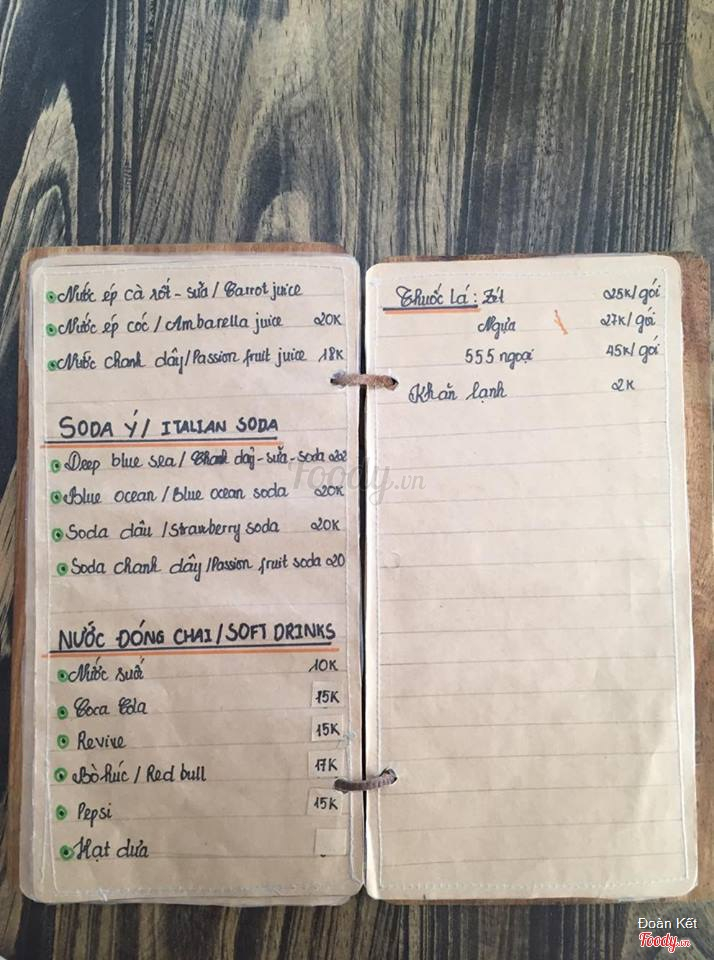 Nước ép cà rốt - sữa / Carrot juice
Nước ép cóc / Ambarella juice 20K
Nước chanh dây / Passion fruit juice 18K
SODA Ý / ITALIAN SODA
Deep blue sea / Chanh dây - sữa - soda
Blue ocean / Blue ocean soda 20K
Soda dâu / Strawberry soda 20K
Soda chanh dây / Passion fruit soda 20
NƯỚC ĐÓNG CHAI / SOFT DRINKS
Nước suối 10K
Coca Cola 15K
Revive 15K
Bò húc / Red bull 17K
Pepsi 15K
Hạt dưa
Thuốc lá: Zét 25K/gói
Ngựa 27K/gói
555 ngoại 45K/gói
Khăn lạnh 2K
Foody.vn
Đoàn Kết
Foody.vn